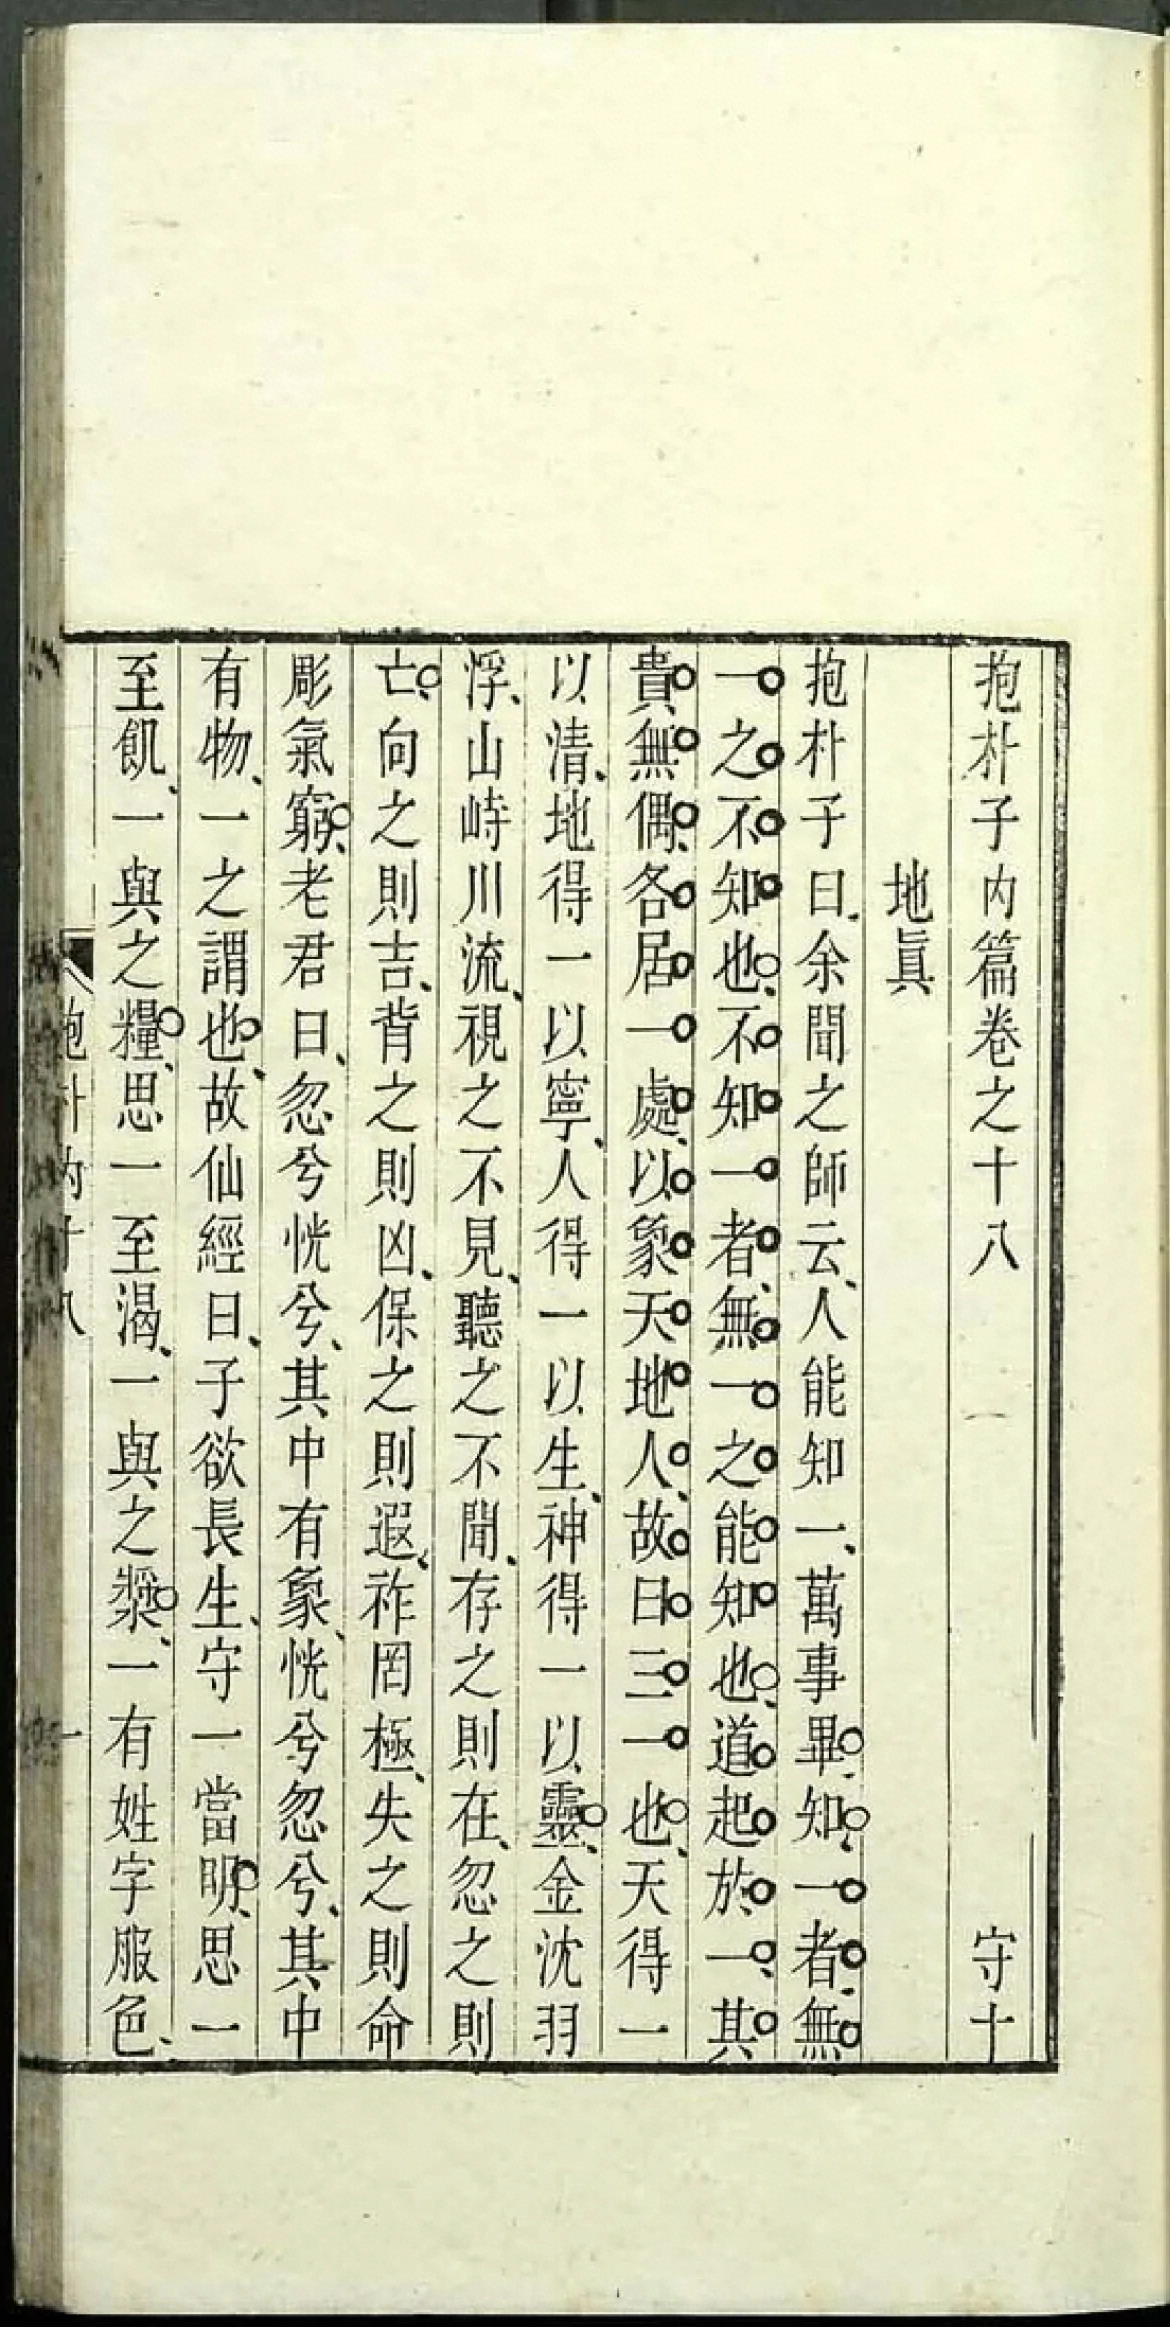 抱朴子內篇卷之十八 守十
地眞
抱朴子曰、余聞之師云、人能知一、萬事畢、知、一者、無
一之不知也、不知一者、無一之能知也、道起於一、其
貴無偶、各居一處、以象天地人、故曰三一也、天得一
以清、地得一以寧、人得一以生、神得一以靈、金沈羽
浮、山峙川流、視之不見、聽之不聞、存之則在、忽之則
亡、向之則吉、背之則凶、保之則遐、祚罔極、失之則命
彫氣窮、老君曰、忽兮恍兮、其中有象、恍兮忽兮、其中
有物、一之謂也、故仙經曰、子欲長生、守一當明、思一
至飢、一與之糧、思一至渴、一與之漿、一有姓字服色、
抱朴內十八 一